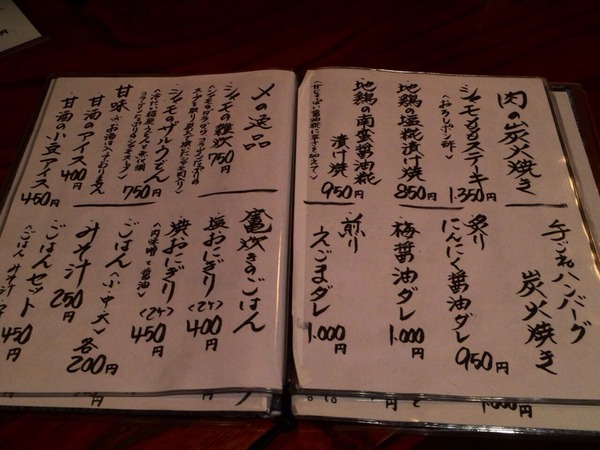 肉の炭火焼き
シャモももステーキ 1,350円
(おろしポン酢)
地鶏の塩糀漬け焼 850円
地鶏の南蛮醤油糀
漬け焼 950円
手ごねハンバーグ
炭火焼き
炙りにんにく醤油ダレ 950円
梅醤油ダレ 1,000円
煎りえごまダレ 1,000円
〆の逸品
シャモの雑炊 750円
シャモのザルうどん 750円
甘味
甘酒のアイス 400円
甘酒の小豆アイス 450円
竈炊きのごはん
塩おにぎり(2ケ) 400円
焼おにぎり(2ケ) 450円
(肉味噌と醤油)
ごはん(小・中・大) 各200円
みそ汁 250円
ごはんセット 450円
1,000円